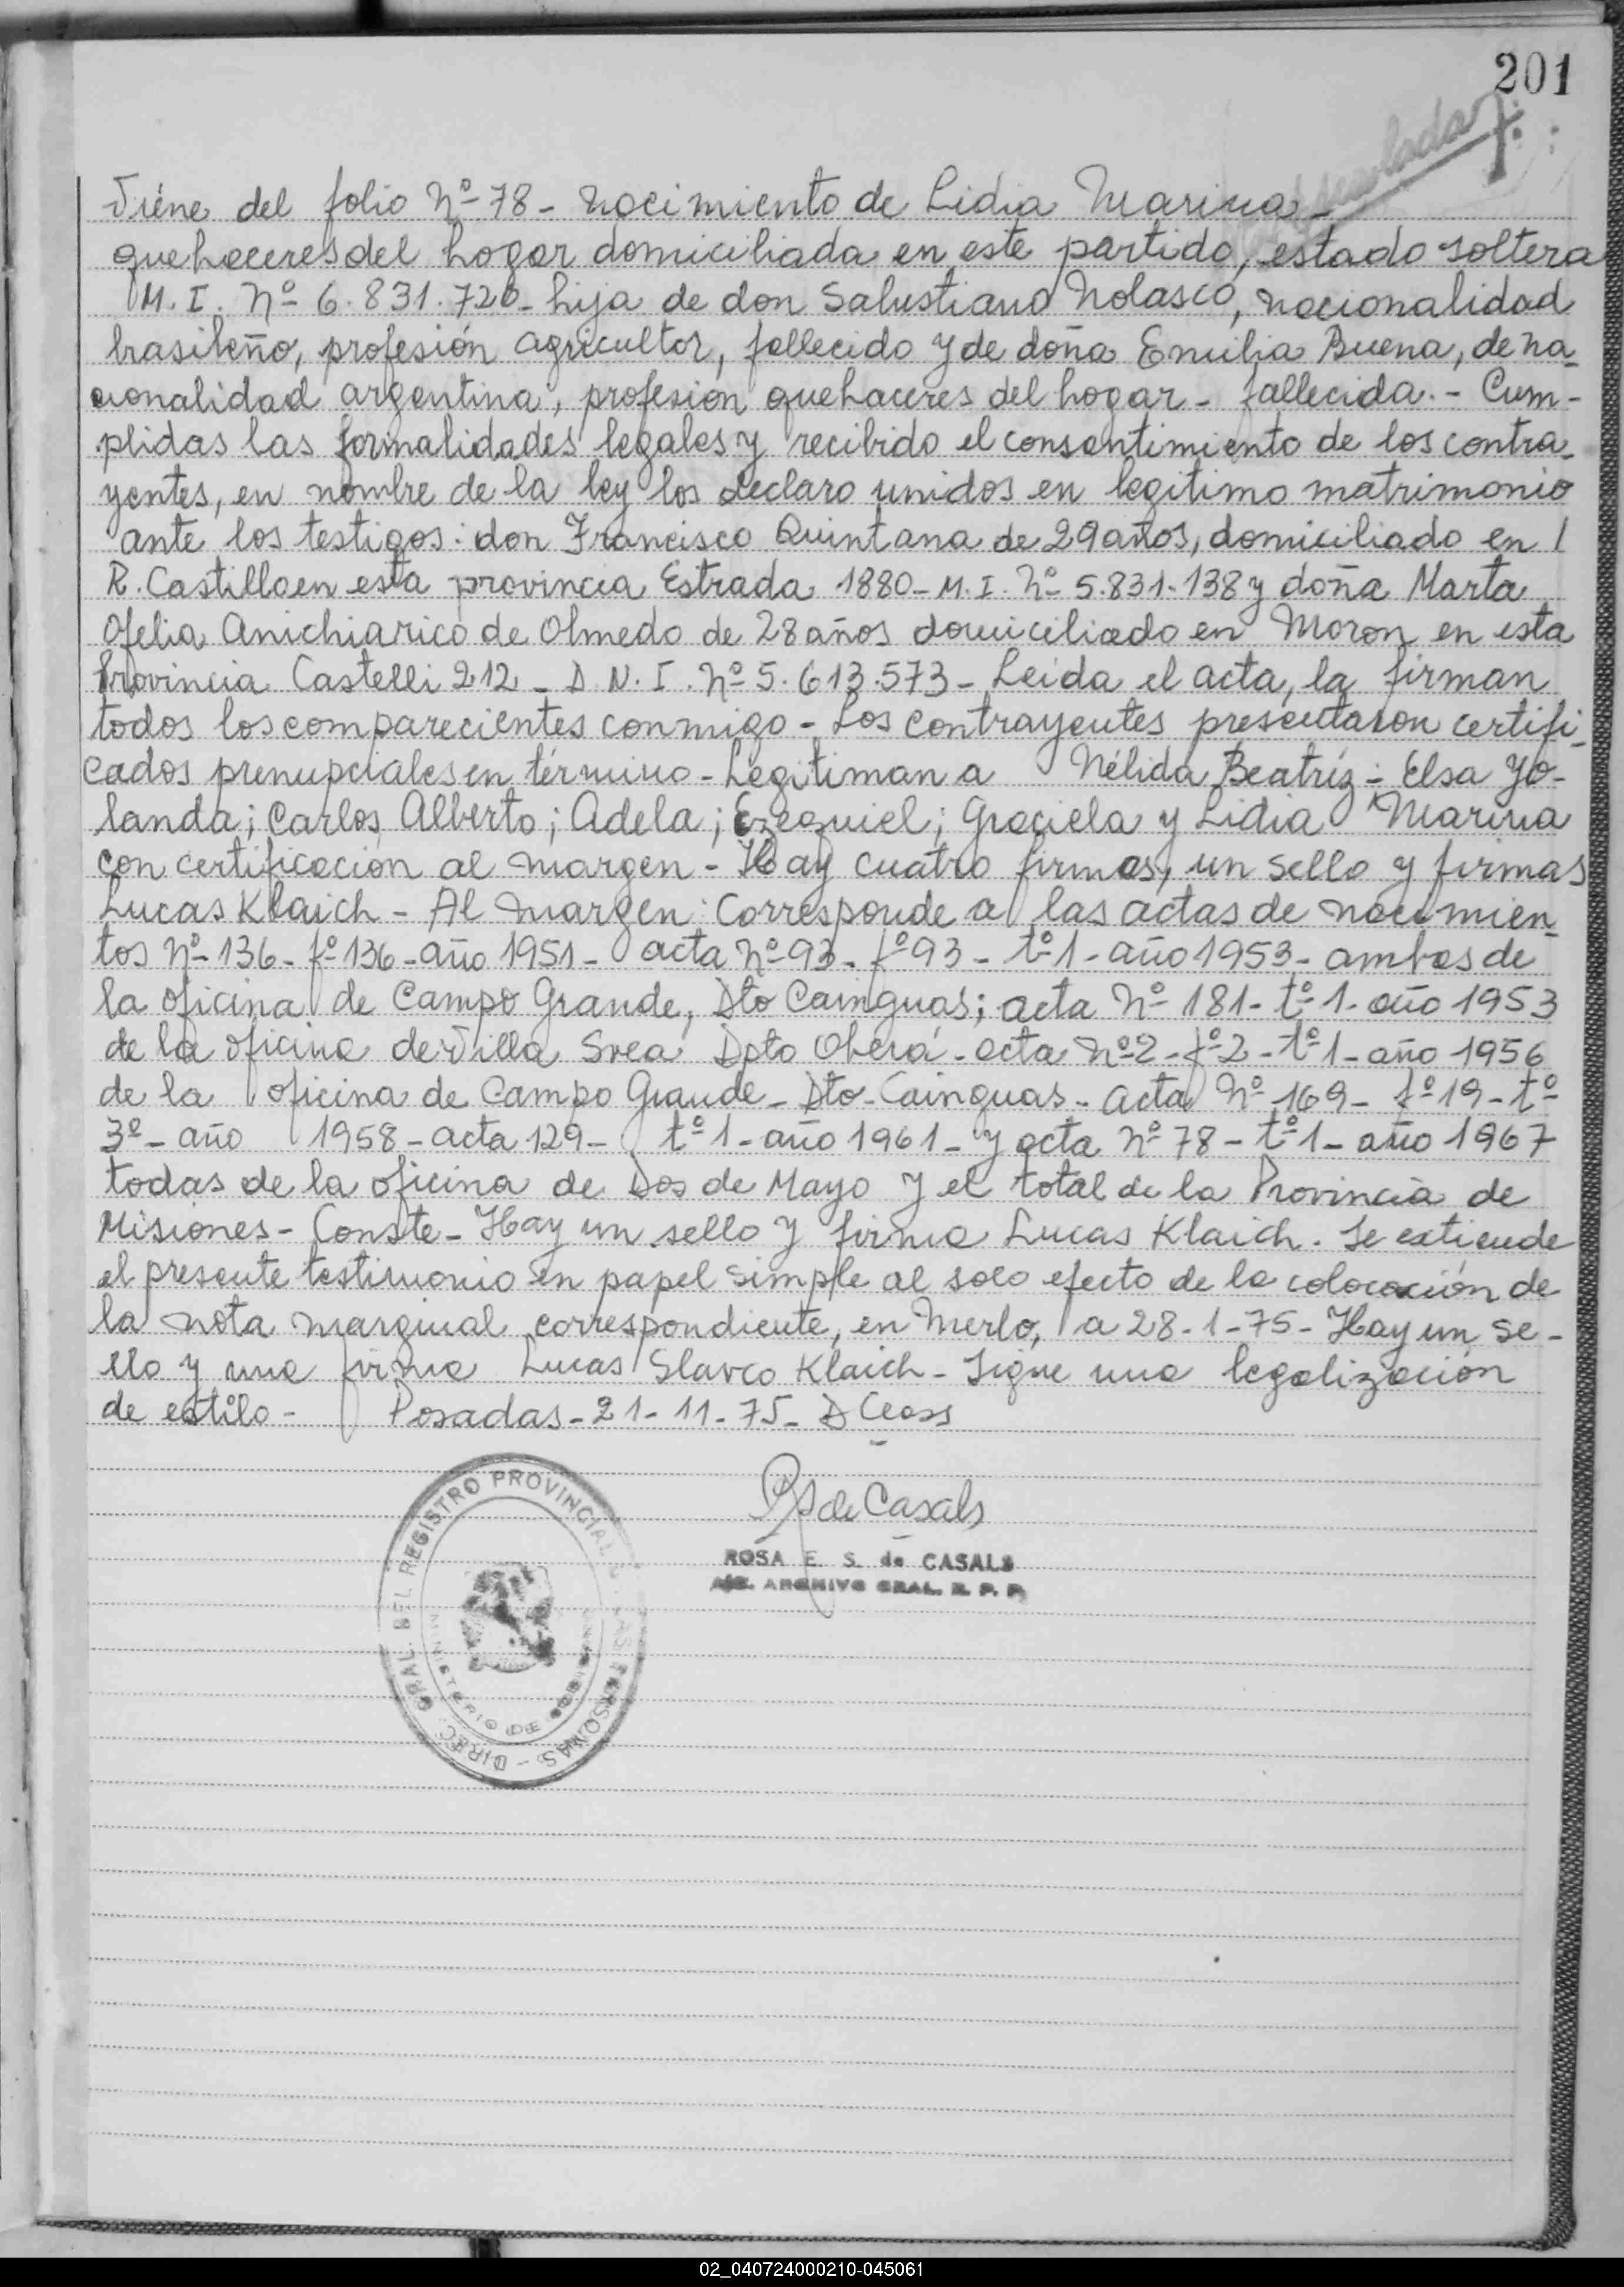 201
Viene del folio Nº 78 - Nacimiento de Lidia Marina -
quehaceres del hogar domiciliada en este partido, estado soltera
M. I. Nº 6.831.720 - hija de don Salustiano Nolasco, nacionalidad
brasileño, profesión agricultor, fallecido y de doña Emilia Buena, de na-
cionalidad argentina, profesion quehaceres del hogar - fallecida. - Cum-
plidas las formalidades legales y recibido el consentimiento de los contra-
yentes, en nombre de la ley los declaro unidos en legitimo matrimonio
ante los testigos: don Francisco Quintana de 29 años, domiciliado en /
R. Castillo en esta provincia Estrada 1880 - M. I. Nº 5.831.138 y doña Marta
Ofelia Anichiarico de Olmedo de 28 años domiciliado en Moron en esta
Provincia Castelli 212 - D N. I. Nº 5.613.573 - Leida el acta, la firman
todos los comparecientes conmigo - Los contrayentes presentaron certifi-
cados prenupciales en término - Legitiman a Nélida Beatríz - Elsa Yo-
landa; Carlos Alberto; Adela; Ezequiel; Graciela y Lidia Marina
con certificación al margen - Hay cuatro firmas, un sello y firmas
Lucas Klaich - Al margen: Corresponde a las actas de nacimien-
tos Nº 136 - fº 136 - año 1951 - acta Nº 93 - fº 93 - tº 1 - año 1953 - ambas de
la oficina de Campo Grande, Dto Cainguas; acta Nº 181 - tº 1 - año 1953
de la oficina de Villa Svea Dpto Oberá - acta Nº 2 - fº 2 - tº 1 - año 1956
de la oficina de Campo Grande - Dto - Cainguas - acta Nº 169 - fº 19 - tº
3º - año 1958 - acta 129 - tº 1 - año 1961 - y acta Nº 78 - tº 1 - año 1967
todas de la oficina de Dos de Mayo y el total de la Provincia de
Misiones - Conste - Hay un sello y firma Lucas Klaich. Se extiende
el presente testimonio en papel simple al solo efecto de la colocación de
la nota marginal correspondiente, en Merlo, a 28-1-75 - Hay un se-
llo y una firma Lucas Slavco Klaich - Sigue una legalización
de estilo - Posadas - 21-11-75 -
de Casals
ROSA E. S. de CASALS
ARCHIVO GRAL. R. P. P.
DIREC. GRAL. DEL REGISTRO PROVINCIAL DE LAS PERSONAS -
MINISTERIO DE
02_040724000210-045061